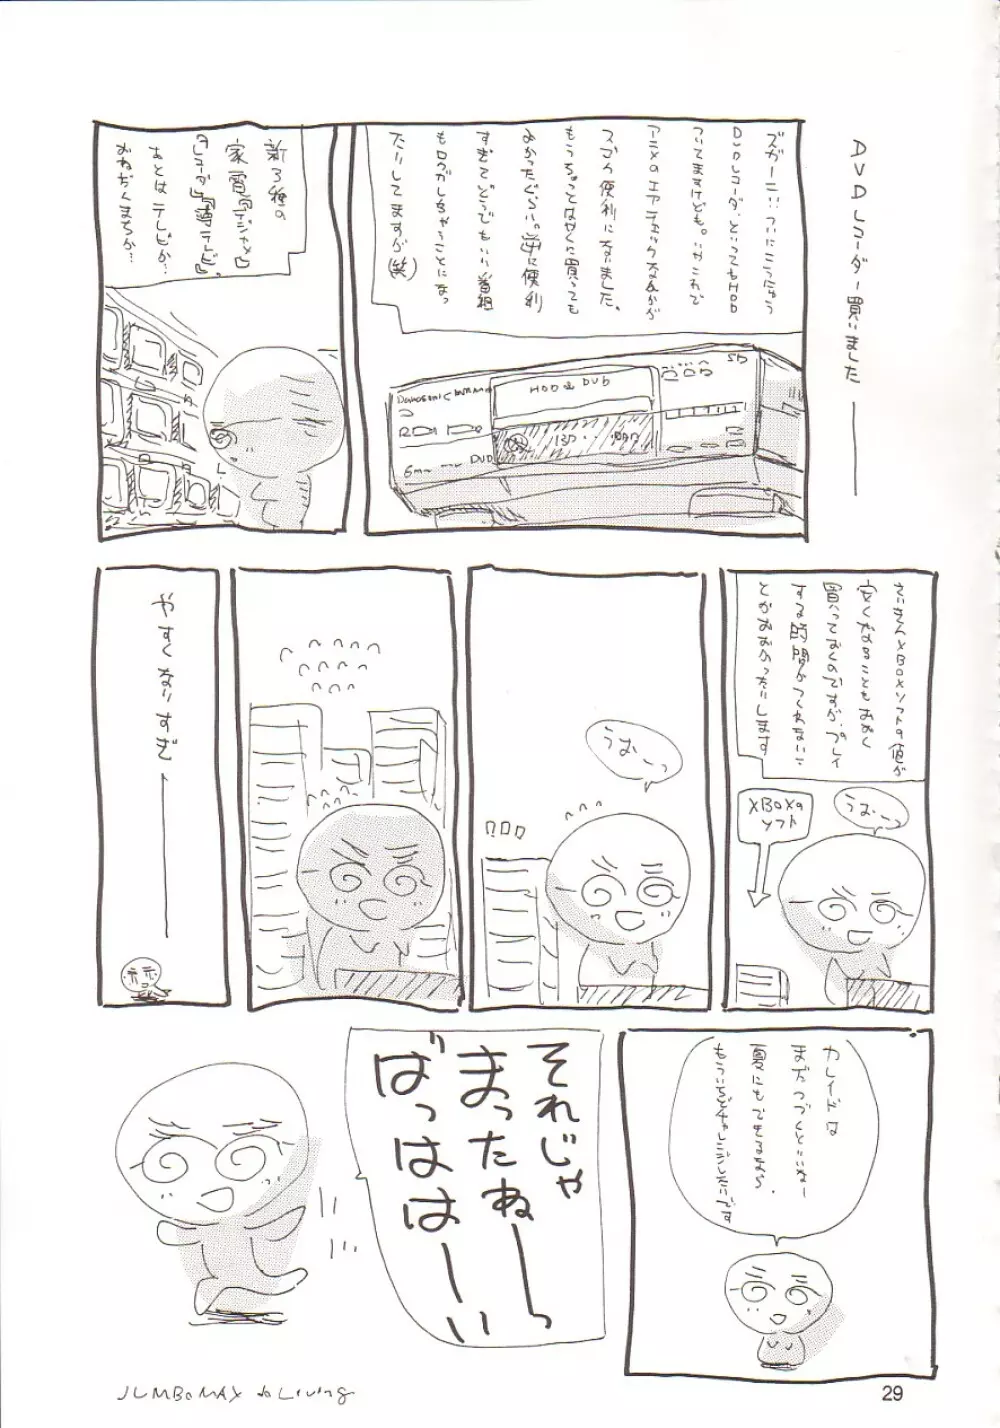 DVDレコーダー買いました――
ズガーーン!! ついにこうにゅう
DVDレコーダ、といってもHDD
ついてますけども。いやこれで
アニメのエアチェックなんかが
スゴク便利になりました。
もうちょっとはやくに買っても
よかったぐらい。逆に便利
すぎてどうでもいい番組
もロクガしちゃうことになっ
たりしてますが(笑)
SD
HDD & DVD
Panasonic
DVD
新3種の
家電「デジカメ」
「レコーダ」「薄テレビ」。
あとはテレビか…
おねだんまちか…
さいきんXBOXソフトの値が
安くなることもおおく
買っておくのですが、プレイ
する時間がつくれないこ
とがおおかったりします
うおーっ
XBOXの
ソフト
うおーっ
やすくなりすぎ――
カレイドは
まだつづくといいねー
夏にもできるなら、
もういちどチャレンジしたいです
それじゃ
まったねーーっ
ばっはははーーい
JUMBOMAX to Living
29